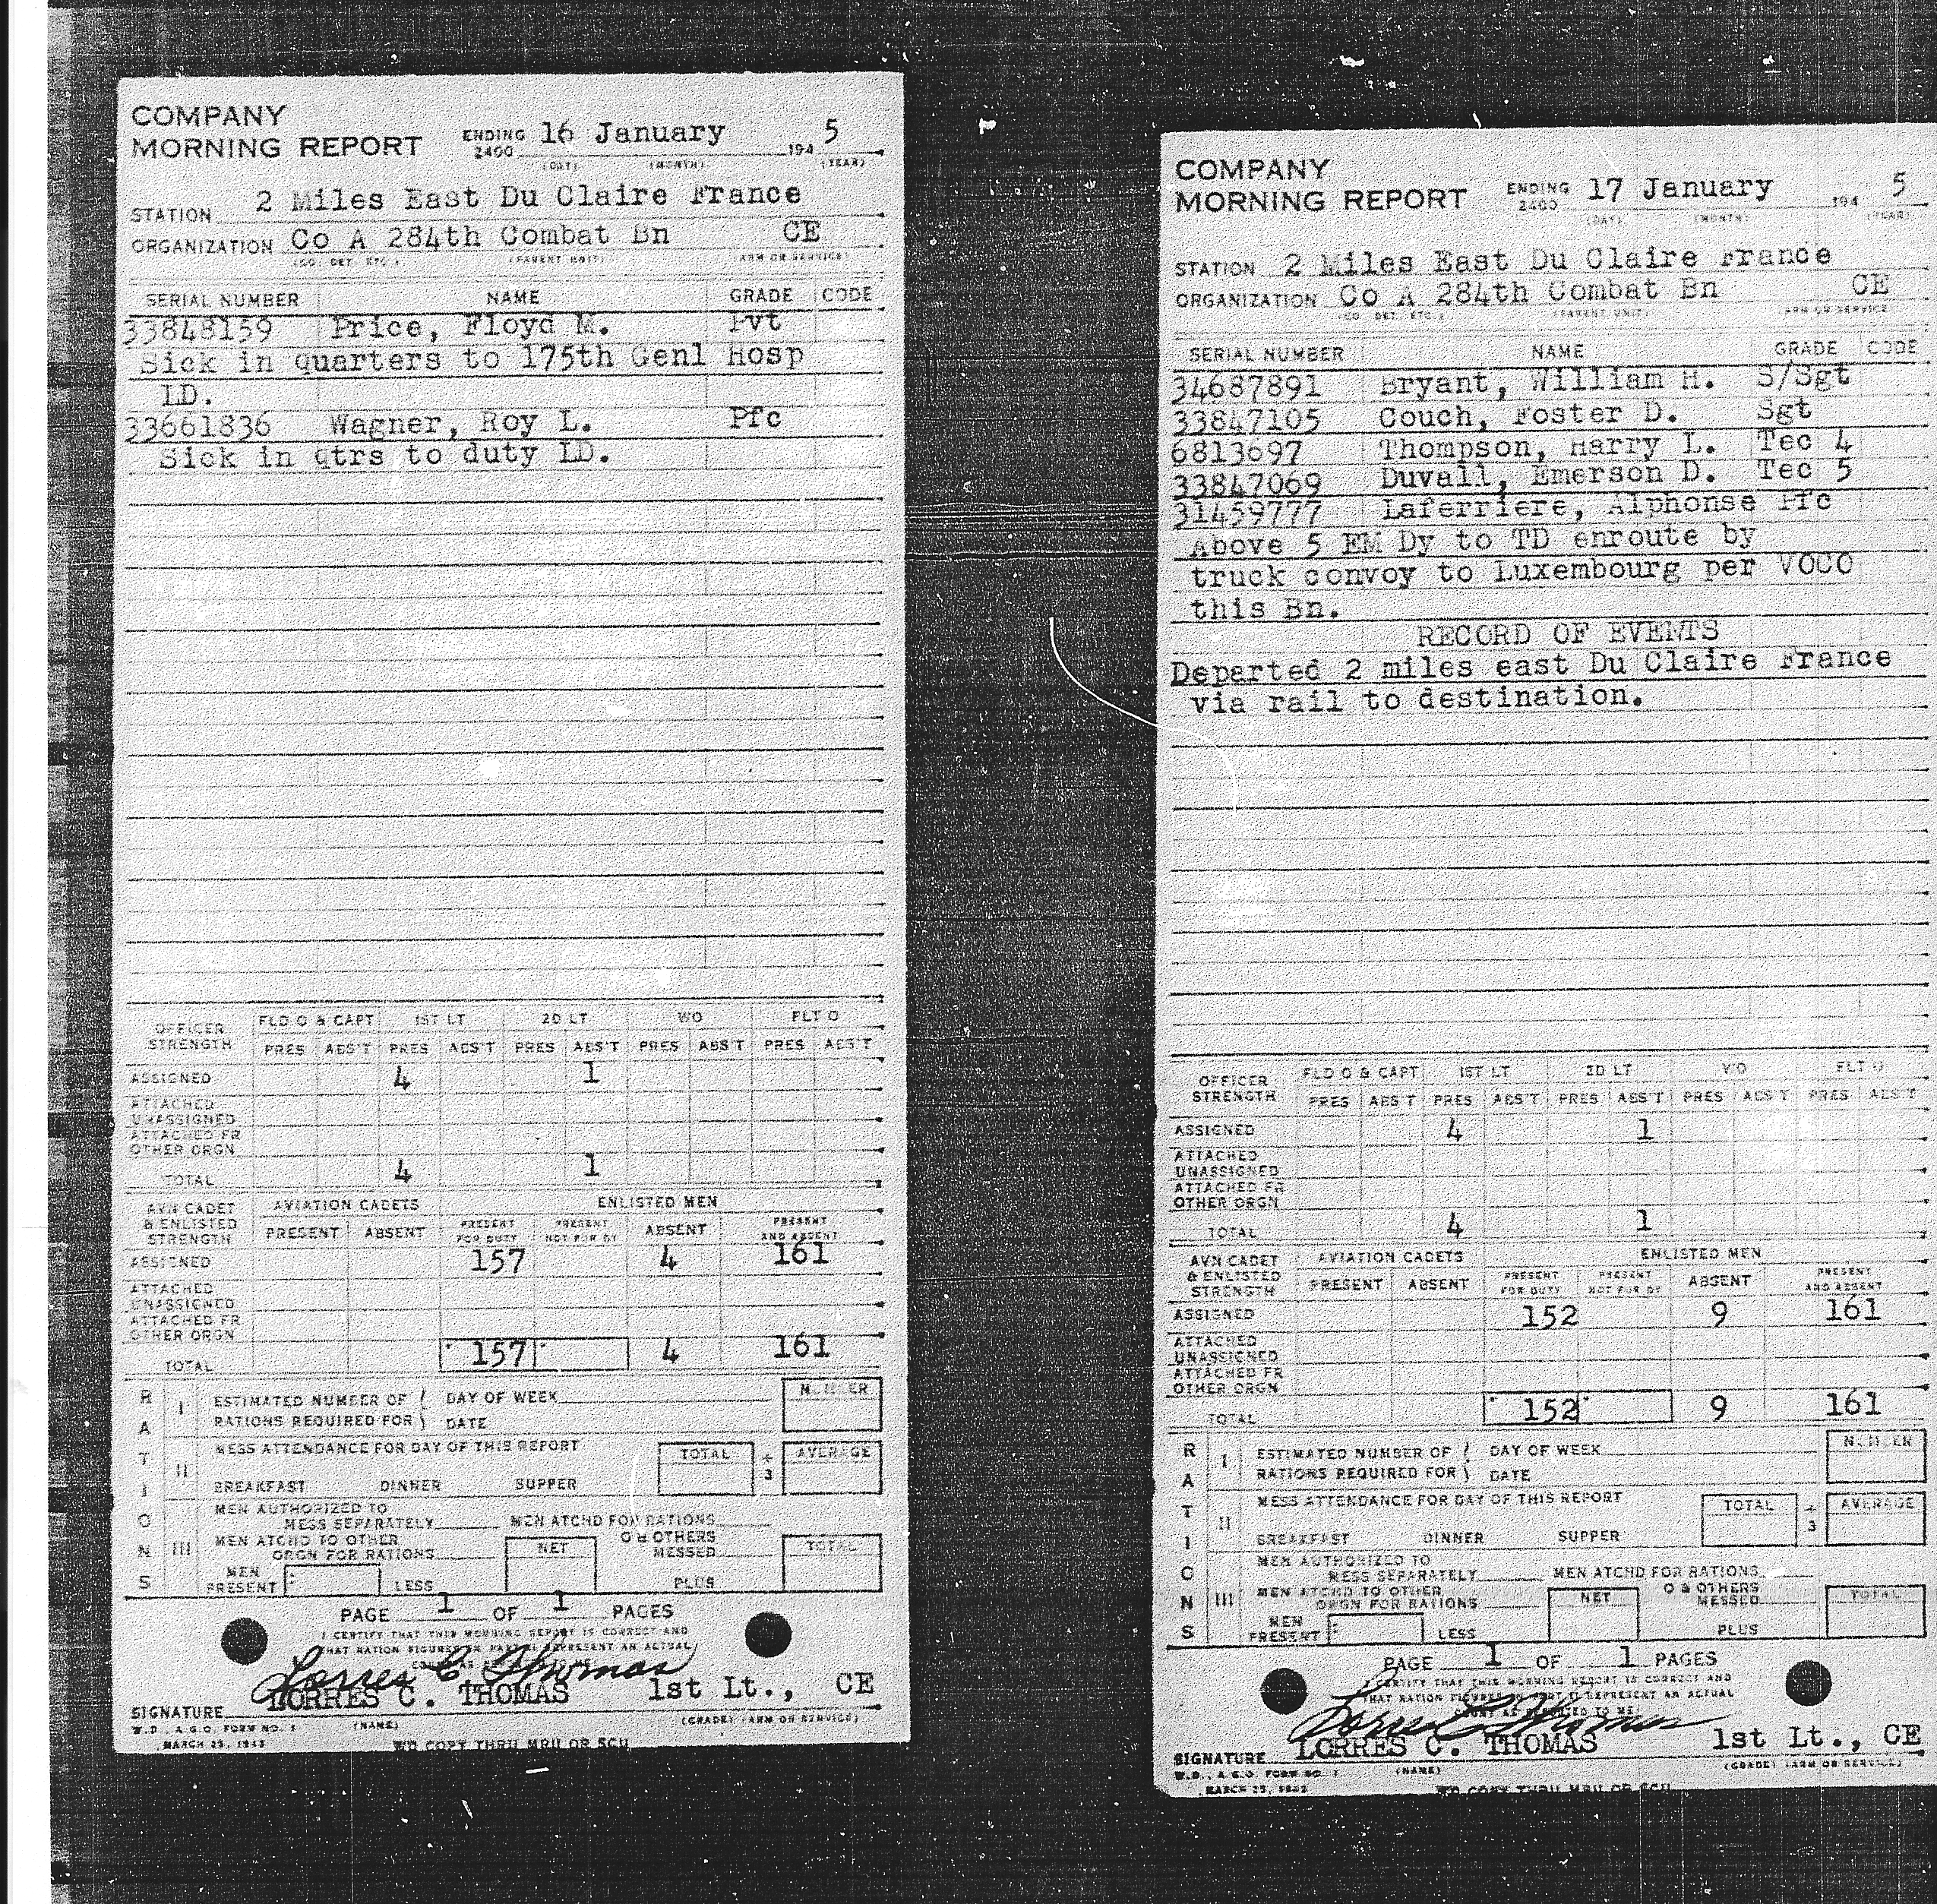 COMPANY
MORNING REPORT ENDING 2400 16 January 194 5
(DAY) (MONTH) (YEAR)
STATION 2 Miles East Du Claire France
ORGANIZATION Co A 284th Combat Bn CE
(CO. DET. ETC.) (PARENT UNIT) (ARM OR SERVICE)
SERIAL NUMBER NAME GRADE CODE
33848159 Price, Floyd M. Pvt
Sick in quarters to 175th Genl Hosp
LD.
33661836 Wagner, Roy L. Pfc
Sick in qtrs to duty LD.
OFFICER STRENGTH FLD O & CAPT 1ST LT 2D LT WO FLT O
PRES ABS'T PRES ABS'T PRES ABS'T PRES ABS'T PRES ABS'T
ASSIGNED 4 1
ATTACHED UNASSIGNED
ATTACHED FR OTHER ORGN
TOTAL 4 1
AVN CADET & ENLISTED STRENGTH AVIATION CADETS ENLISTED MEN
PRESENT ABSENT PRESENT FOR DUTY PRESENT NOT FOR DY ABSENT PRESENT AND ABSENT
ASSIGNED 157 4 161
ATTACHED UNASSIGNED
ATTACHED FR OTHER ORGN
TOTAL 157 4 161
RATIONS
I ESTIMATED NUMBER OF RATIONS REQUIRED FOR DAY OF WEEK DATE NUMBER
II MESS ATTENDANCE FOR DAY OF THIS REPORT TOTAL ÷ 3 AVERAGE
BREAKFAST DINNER SUPPER
III MEN AUTHORIZED TO MESS SEPARATELY MEN ATCHD FOR RATIONS
MEN ATCHD TO OTHER ORGN FOR RATIONS NET O & OTHERS MESSED TOTAL
MEN PRESENT LESS PLUS
PAGE 1 OF 1 PAGES
I CERTIFY THAT THIS MORNING REPORT IS CORRECT AND
THAT RATION FIGURES IN PART II REPRESENT AN ACTUAL
Lorres C Thomas
LORRES C. THOMAS 1st Lt., CE
SIGNATURE
(NAME) (GRADE) (ARM OR SERVICE)
W.D., A.G.O. FORM NO. 1
MARCH 25, 1943
WD COPY THRU MRU OR SCU
COMPANY
MORNING REPORT ENDING 2400 17 January 194 5
(DAY) (MONTH) (YEAR)
STATION 2 Miles East Du Claire France
ORGANIZATION Co A 284th Combat Bn CE
(CO. DET. ETC.) (PARENT UNIT) (ARM OR SERVICE)
SERIAL NUMBER NAME GRADE CODE
34687891 Bryant, William H. S/Sgt
33847105 Couch, Foster D. Sgt
6813697 Thompson, Harry L. Tec 4
33847069 Duvall, Emerson D. Tec 5
31459777 Laferriere, Alphonse Pfc
Above 5 EM Dy to TD enroute by
truck convoy to Luxembourg per VOCO
this Bn.
RECORD OF EVENTS
Departed 2 miles east Du Claire France
via rail to destination.
OFFICER STRENGTH FLD O & CAPT 1ST LT 2D LT WO FLT O
PRES ABS'T PRES ABS'T PRES ABS'T PRES ABS'T PRES ABS'T
ASSIGNED 4 1
ATTACHED UNASSIGNED
ATTACHED FR OTHER ORGN
TOTAL 4 1
AVN CADET & ENLISTED STRENGTH AVIATION CADETS ENLISTED MEN
PRESENT ABSENT PRESENT FOR DUTY PRESENT NOT FOR DY ABSENT PRESENT AND ABSENT
ASSIGNED 152 9 161
ATTACHED UNASSIGNED
ATTACHED FR OTHER ORGN
TOTAL 152 9 161
RATIONS
I ESTIMATED NUMBER OF RATIONS REQUIRED FOR DAY OF WEEK DATE NUMBER
II MESS ATTENDANCE FOR DAY OF THIS REPORT TOTAL ÷ 3 AVERAGE
BREAKFAST DINNER SUPPER
III MEN AUTHORIZED TO MESS SEPARATELY MEN ATCHD FOR RATIONS
MEN ATCHD TO OTHER ORGN FOR RATIONS NET O & OTHERS MESSED TOTAL
MEN PRESENT LESS PLUS
PAGE 1 OF 1 PAGES
I CERTIFY THAT THIS MORNING REPORT IS CORRECT AND
THAT RATION FIGURES IN PART II REPRESENT AN ACTUAL
Lorres C Thomas
LORRES C. THOMAS 1st Lt., CE
SIGNATURE
(NAME) (GRADE) (ARM OR SERVICE)
W.D., A.G.O. FORM NO. 1
MARCH 25, 1943
WD COPY THRU MRU OR SCU